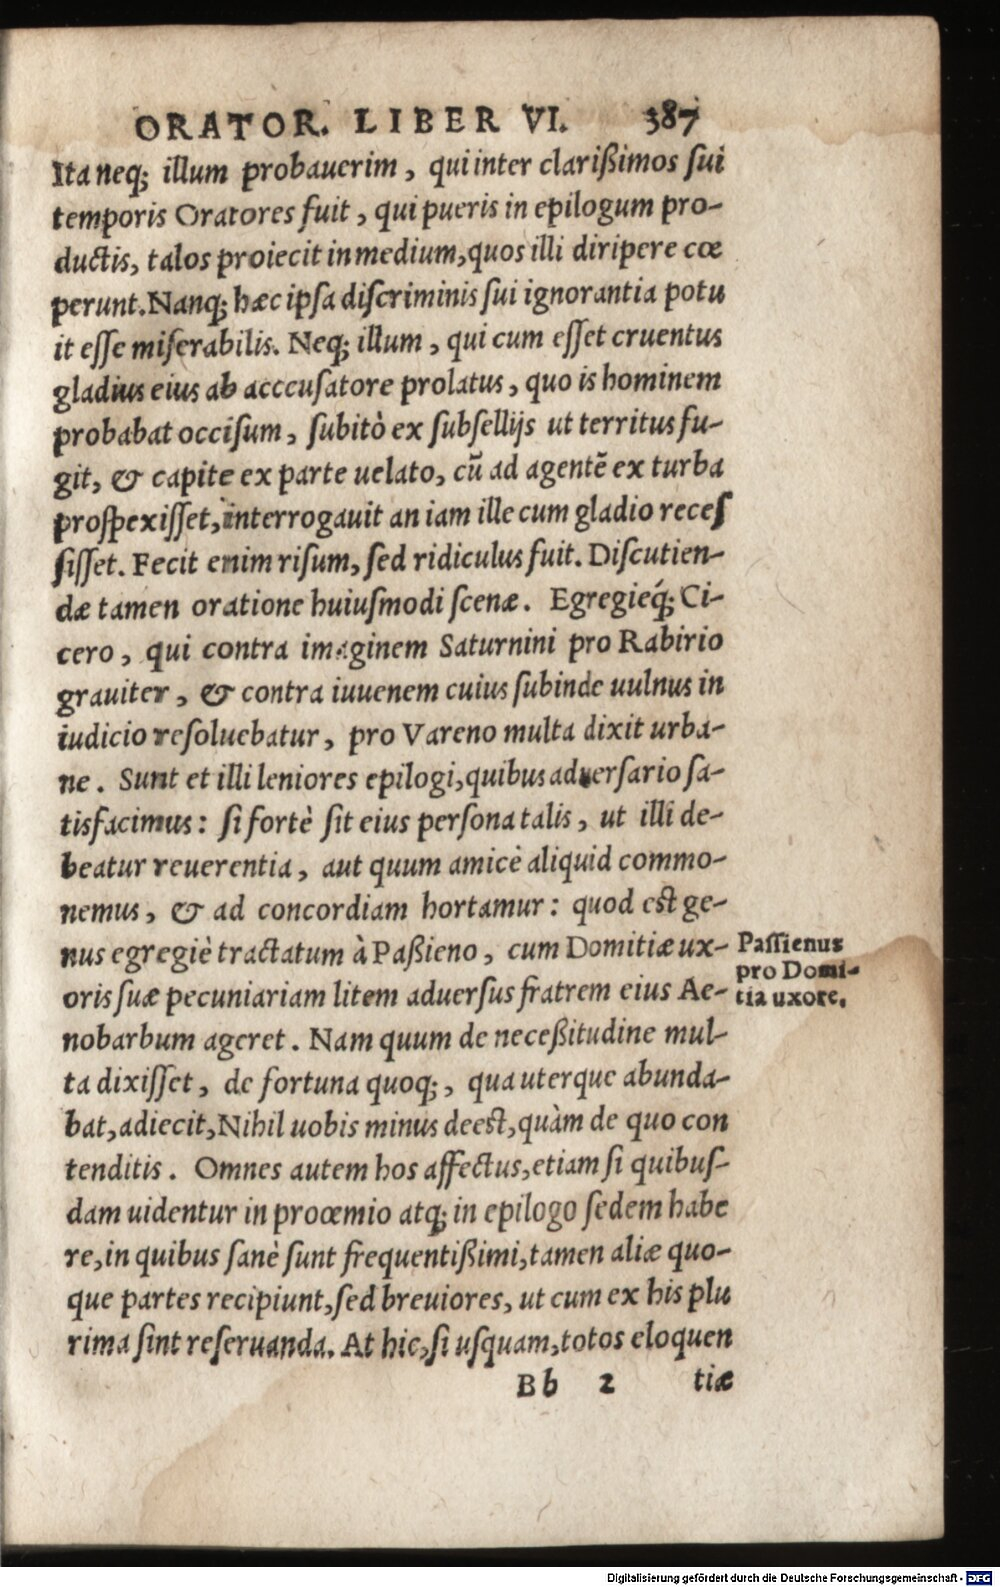 ORATOR. LIBER VI. 387
Ita neq; illum probauerim, qui inter clarißimos ſui
temporis Oratores fuit, qui pueris in epilogum pro-
ductis, talos proiecit in medium, quos illi diripere cœ
perunt. Nanq; hæc ipſa diſcriminis ſui ignorantia potu
it eſſe miſerabilis. Neq; illum, qui cum eſſet cruentus
gladius eius ab acccuſatore prolatus, quo is hominem
probabat occiſum, ſubitò ex ſubſellijs ut territus fu-
git, & capite ex parte uelato, cũ ad agentē ex turba
proſpexiſſet, interrogauit an iam ille cum gladio receſ
ſiſſet. Fecit enim riſum, ſed ridiculus fuit. Diſcutien-
dæ tamen oratione huiuſmodi ſcenæ. Egregieq́; Ci-
cero, qui contra imaginem Saturnini pro Rabirio
grauiter, & contra iuuenem cuius ſubinde uulnus in
iudicio reſoluebatur, pro Vareno multa dixit urba-
ne. Sunt et illi leniores epilogi, quibus aduerſario ſa-
tisfacimus: ſi fortè ſit eius perſona talis, ut illi de-
beatur reuerentia, aut quum amicè aliquid commo-
nemus, & ad concordiam hortamur: quod est ge-
nus egregiè tractatum à Paßieno, cum Domitiæ ux-
oris ſuæ pecuniariam litem aduerſus fratrem eius Ae-
nobarbum ageret. Nam quum de neceßitudine mul-
ta dixiſſet, de fortuna quoq;, qua uterque abunda-
bat, adiecit, Nihil uobis minus deest, quàm de quo con
tenditis. Omnes autem hos affectus, etiam ſi quibuſ-
dam uidentur in proœmio atq; in epilogo ſedem habe
re, in quibus ſanè ſunt frequentißimi, tamen aliæ quo-
que partes recipiunt, ſed breuiores, ut cum ex his plu
rima ſint reſeruanda. At hic, ſi uſquam, totos eloquen
Bb 2 tiæ
Paſſienus
pro Domi-
tia uxore.
Digitalisierung gefördert durch die Deutsche Forschungsgemeinschaft - DFG